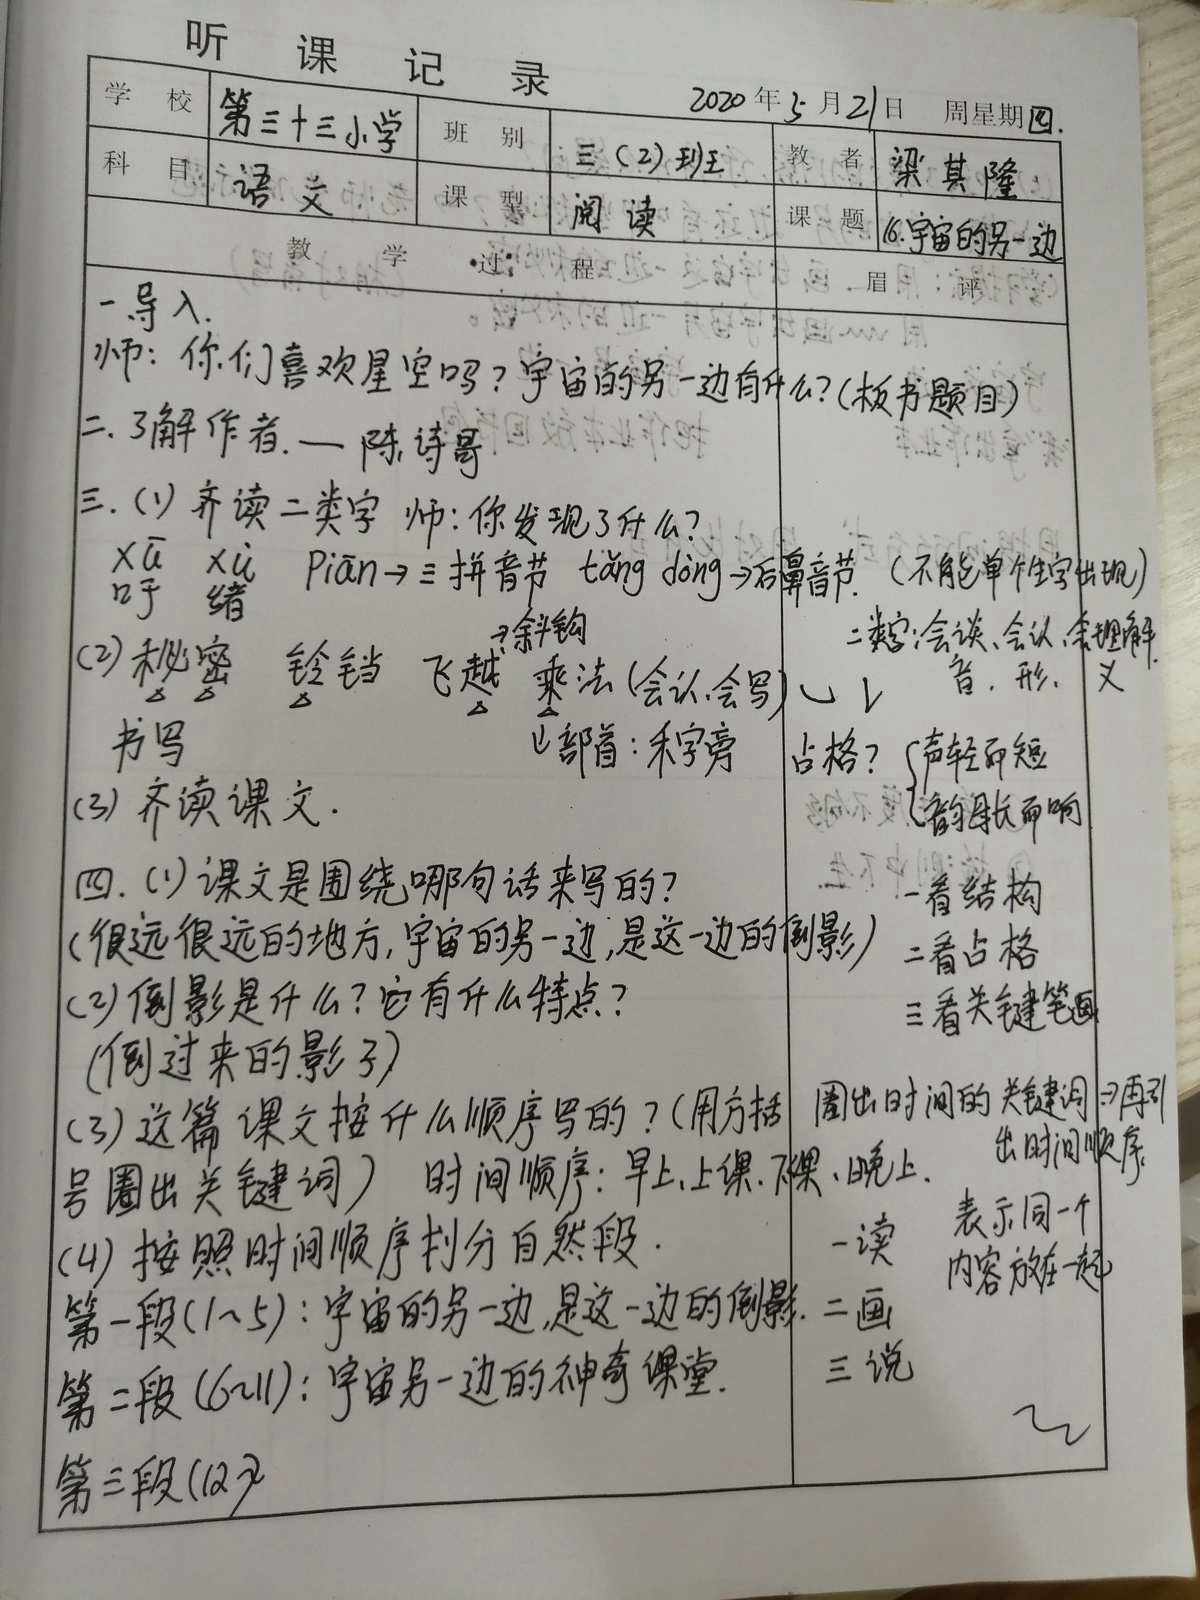 听课记录
2020年5月21日 周星期四.
学校 第三十三小学 班别 三(2)班 教者 梁其隆
科目 语文 课型 阅读 课题 16.宇宙的另一边
教学过程 眉评
一.导入.
师：你们喜欢星空吗？宇宙的另一边有什么？(板书题目)
二.了解作者.— 陈诗哥
三.(1)齐读二类字 师：你发现了什么？
xū xù piān→三拼音节 tāng dòng→后鼻音节. (不能单个生字出现)
吁 绪
二类字：会读、会认、会理解.
音.形.义
→斜钩
(2)秘密 铃铛 飞越 乘法(会认.会写)
书写 部首：禾字旁 占格？
声轻而短
韵母长而响
(3)齐读课文.
四.(1)课文是围绕哪句话来写的？
一看结构
(很远很远的地方,宇宙的另一边,是这一边的倒影)
二看占格
(2)倒影是什么？它有什么特点？
三看关键笔画
(倒过来的影子)
(3)这篇课文按什么顺序写的？(用方括
号圈出关键词) 时间顺序：早上、上课.下课、晚上.
圈出时间的关键词→再引
出时间顺序.
(4)按照时间顺序划分自然段.
一读
表示同一个
内容放在一起
第一段(1~5)：宇宙的另一边,是这一边的倒影.
二画
第二段(6~11)：宇宙另一边的神奇课堂.
三说
第三段(12~